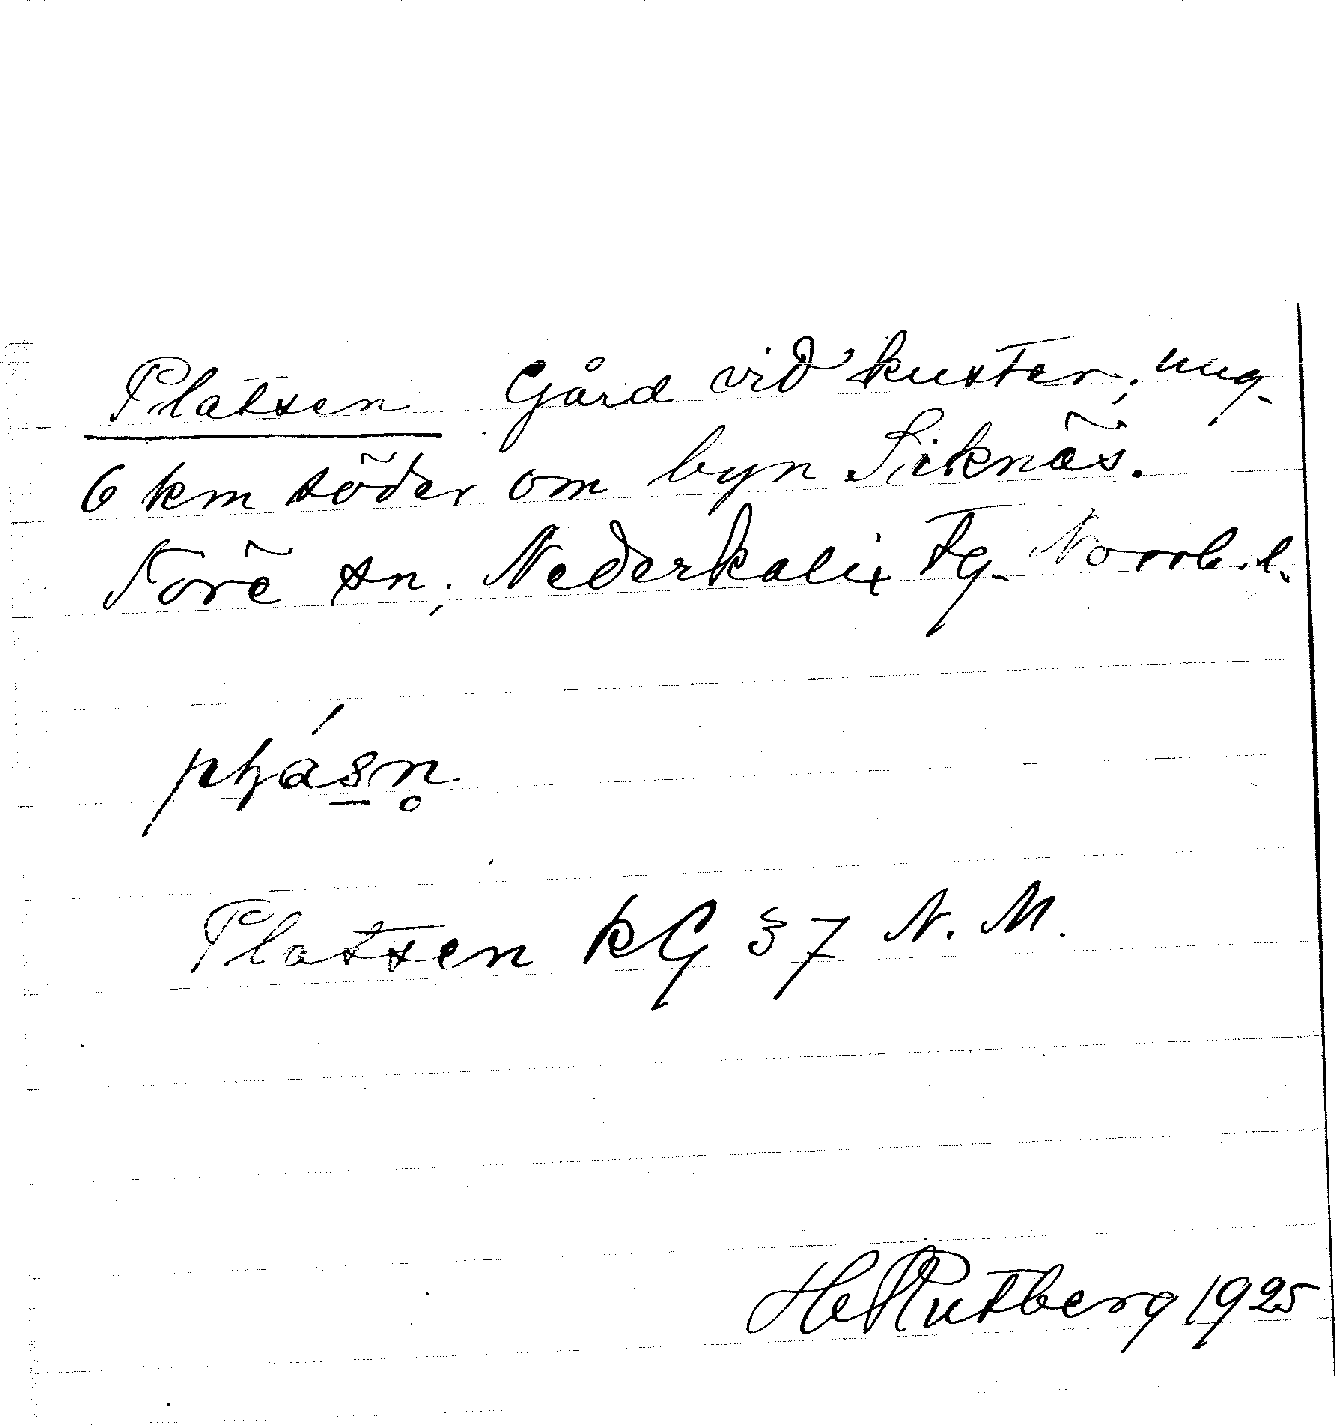 Platsen Gård vid kusten, ung.
6 km söder om byn Siknäs.
Töre sn, Nederkalix tg. Norrb. l.
Platsen kG § 7 N. M.
Hellutberg 1925